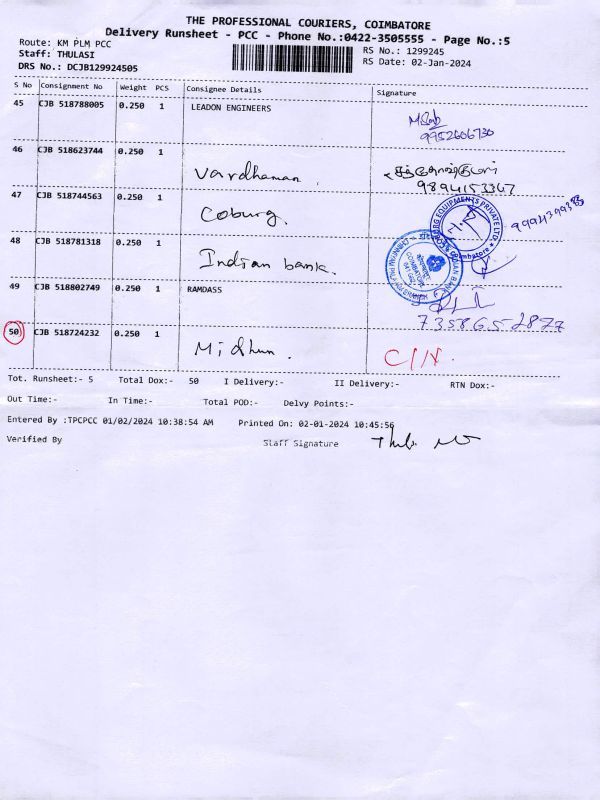 THE PROFESSIONAL COURIERS, COIMBATORE
Delivery Runsheet - PCC - Phone No.:0422-3505555 - Page No.:5
Route: KM PLM PCC
RS No.: 1299245
Staff: THULASI
RS Date: 02-Jan-2024
DRS No.: DCJB129924505
S No Consignment No Weight PCS Consignee Details Signature
45 CJB 518788005 0.250 1 LEADON ENGINEERS
9952606730
46 CJB 518623744 0.250 1 Vardhaman
9894153367
47 CJB 518744563 0.250 1 Coburg.
48 CJB 518781318 0.250 1 Indian bank.
49 CJB 518802749 0.250 1 RAMDASS
50 CJB 518724232 0.250 1 Midhun.
Tot. Runsheet:- 5 Total Dox:- 50 I Delivery:- II Delivery:- RTN Dox:-
Out Time:- In Time:- Total POD:- Delvy Points:-
Entered By :TPCPCC 01/02/2024 10:38:54 AM Printed On: 02-01-2024 10:45:56
Verified By Staff Signature